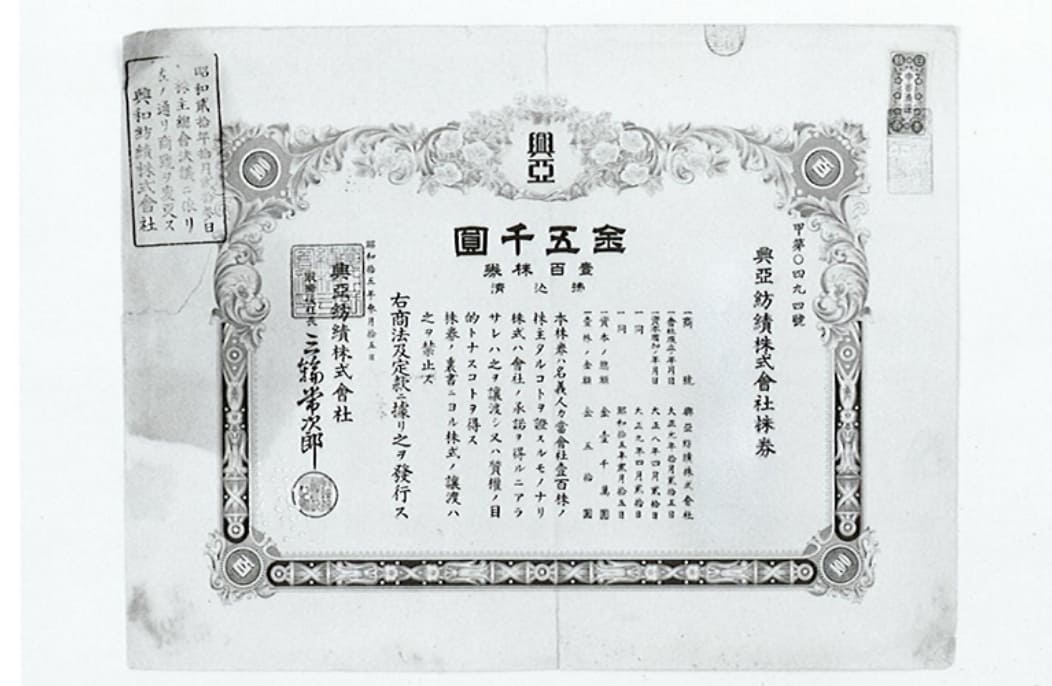 興亞
甲第〇四九四號
興亞紡績株式會社株券
金五千圓
壹百株券
拂込濟
一商號 興亞紡績株式會社
一會社成立ノ年月日 大正元年拾月貳拾五日
一資本増加ノ年月日 大正八年四月貳拾日
一同 大正九年四月貳拾日
一同 昭和拾五年貳月拾五日
一資本ノ總額 金壹千萬圓
一壹株ノ金額 金五拾圓
本株券ハ名義人カ當會社壹百株ノ
株主タルコトヲ證スルモノナリ
株式ハ會社ノ承諾ヲ得ルニアラ
サレハ之ヲ讓渡シ又ハ質權ノ目
的トナスコトヲ得ス
株券ノ裏書ニヨル株式ノ讓渡ハ
之ヲ禁止ス
右商法及定款ニ據リ之ヲ發行ス
昭和拾五年參月拾五日
興亞紡績株式會社
取締役社長 三輪常次郎
昭和貳拾年拾月貳拾參日
株主總會決議ニ依リ
左ノ通リ商號ヲ變更ス
興和紡績株式會社
100
百
百
100